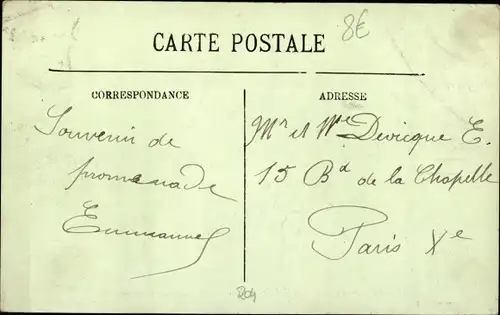 8€
CARTE POSTALE
CORRESPONDANCE
ADRESSE
Souvenir de
promenade
Emmanuel
Mr et Mme Devicque E.
15 Bd de la Chapelle
Paris Xe